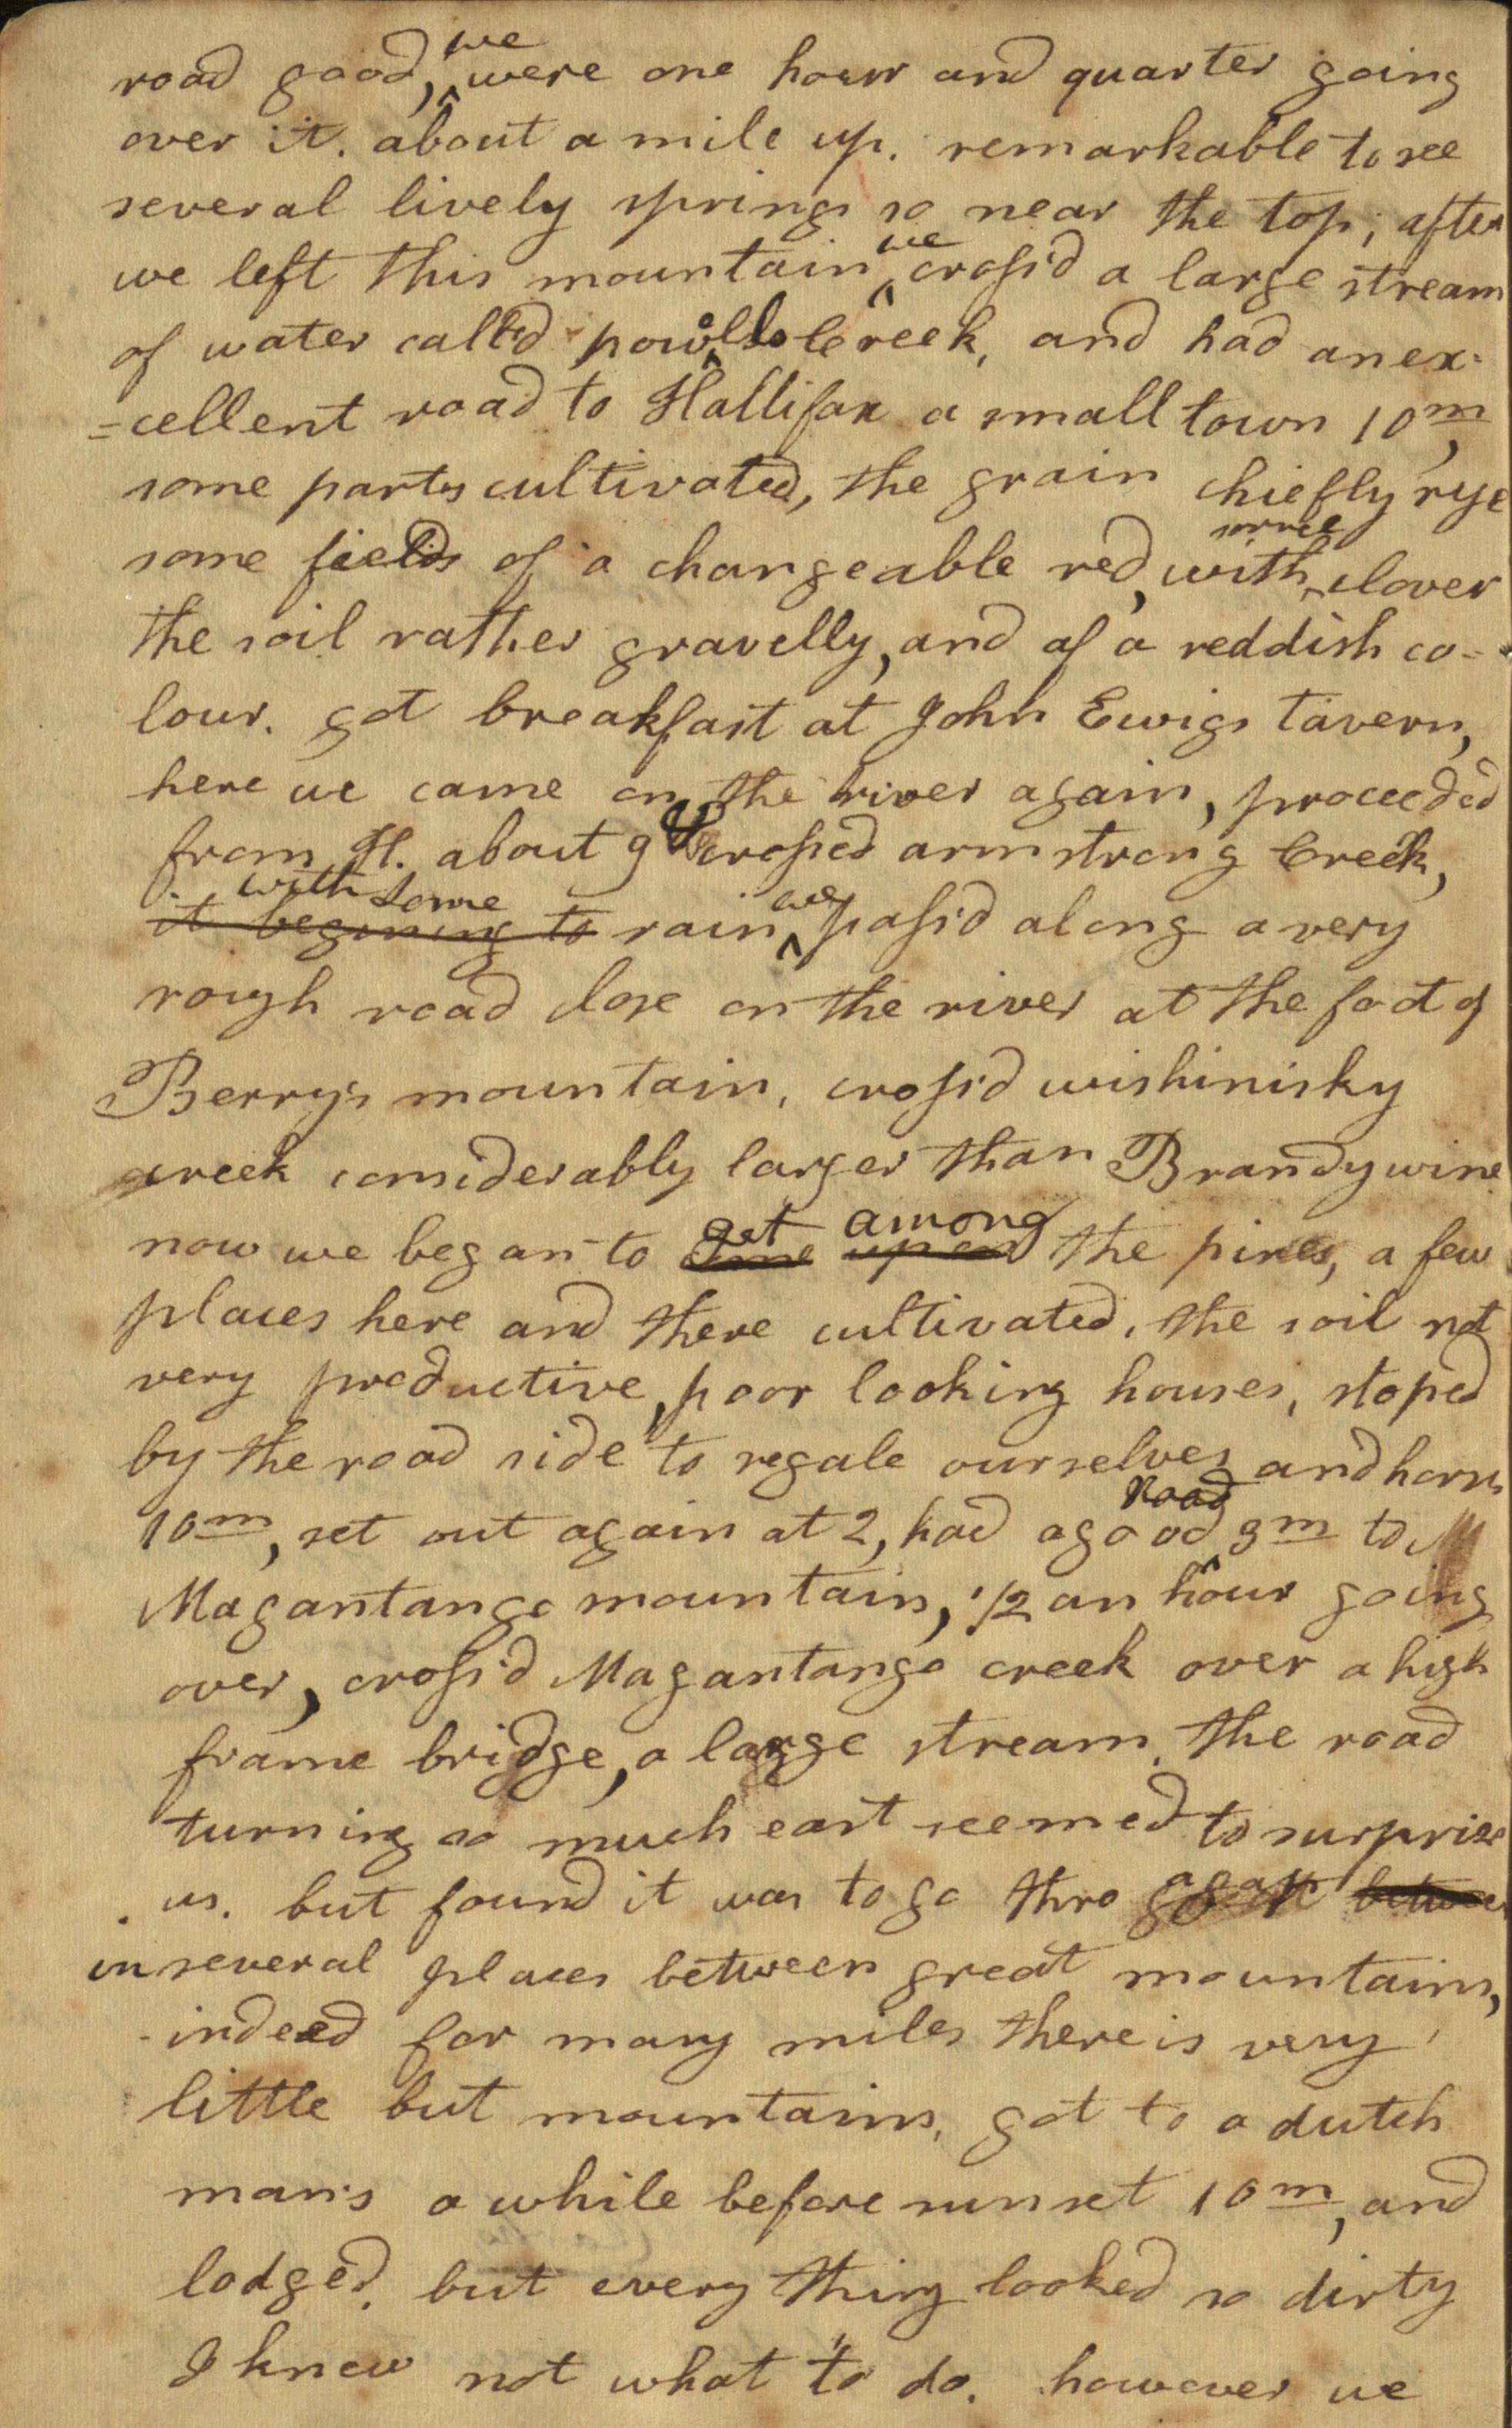 road good, we were one hour and quarter going
over it. about a mile up. remarkable to see
several lively springs so near the top; after
we left this mountain we cross'd a large stream
of water called powells Creek, and had an ex-
=cellent road to Hallifax a small town 10m,
some parts cultivated, the grain chiefly rye
some fields of a changeable red, with sorrel clover
the soil rather gravelly, and of a reddish co-
lour. got breakfast at John Ewigs tavern,
here we came on the river again, proceeded
from H. about 9 & crossed armstrong Creek,
it begining to with some rain, we pass'd along a very
rough road close on the river at the foot of
Berry's mountain, cross'd wishinisky
creek considerably larger than Brandywine
now we began to get among the pines, a few
places here and there cultivated, the soil not
very productive, poor looking houses, stoped
by the road side to regale ourselves and horses
10m, set out again at 2, had a good road 3m to
Magantango mountain, 1/2 an hour going
over, cross'd Magantango creek over a high
frame bridge, a large stream. the road
turning so much east seemed to surprize
us. but found it was to go thro a gap between
in several places between great mountains,
indeed for many miles there is very
little but mountains, got to a dutch
man's a while before sunset 10m, and
lodged. but every thing looked so dirty
I knew not what to do. however we